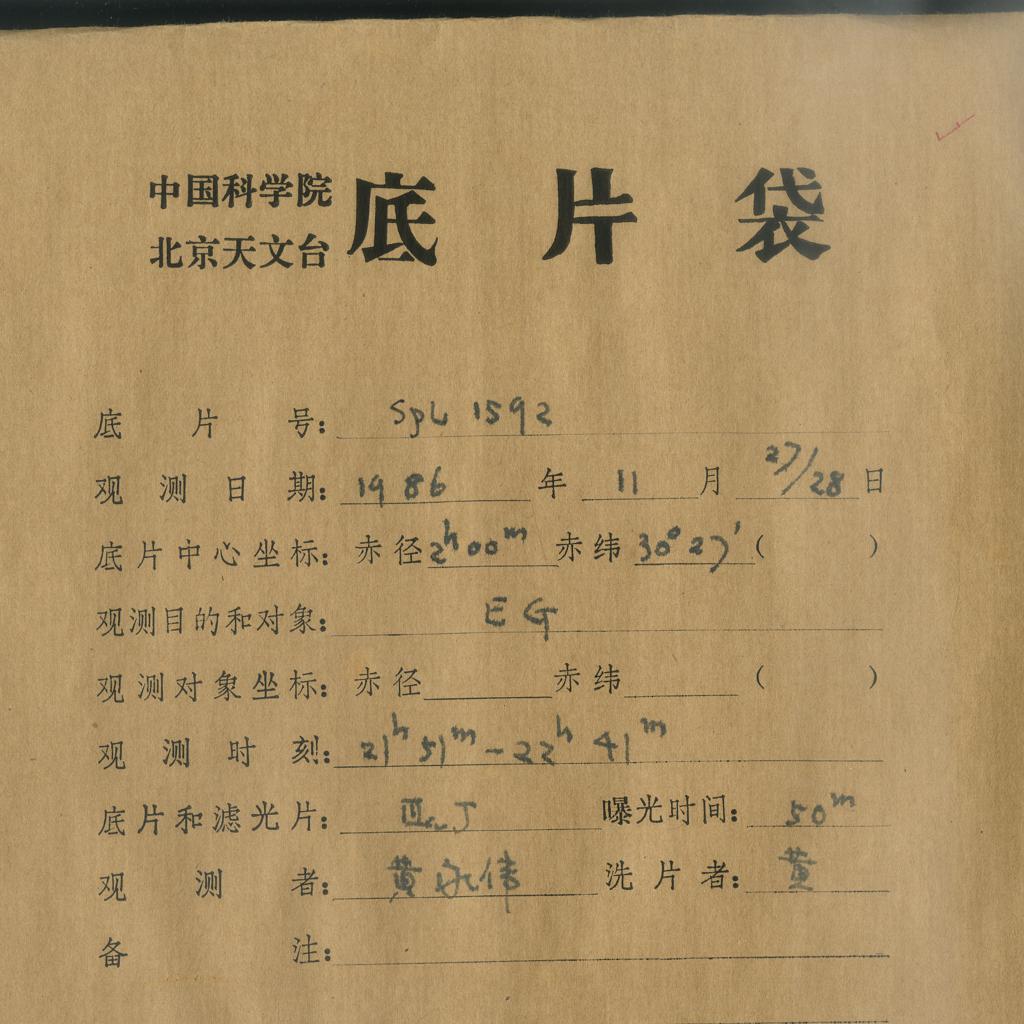 中国科学院
北京天文台
底片袋
底片号: SpL 1592
观测日期: 1986 年 11 月 27/28 日
底片中心坐标: 赤径 2h00m 赤纬 30°27′ ( )
观测目的和对象: EG
观测对象坐标: 赤径 赤纬 ( )
观测时刻: 21h 51m - 22h 41m
底片和滤光片: IIIaJ 曝光时间: 50m
观测者: 黄永伟 洗片者: 黄
备注: